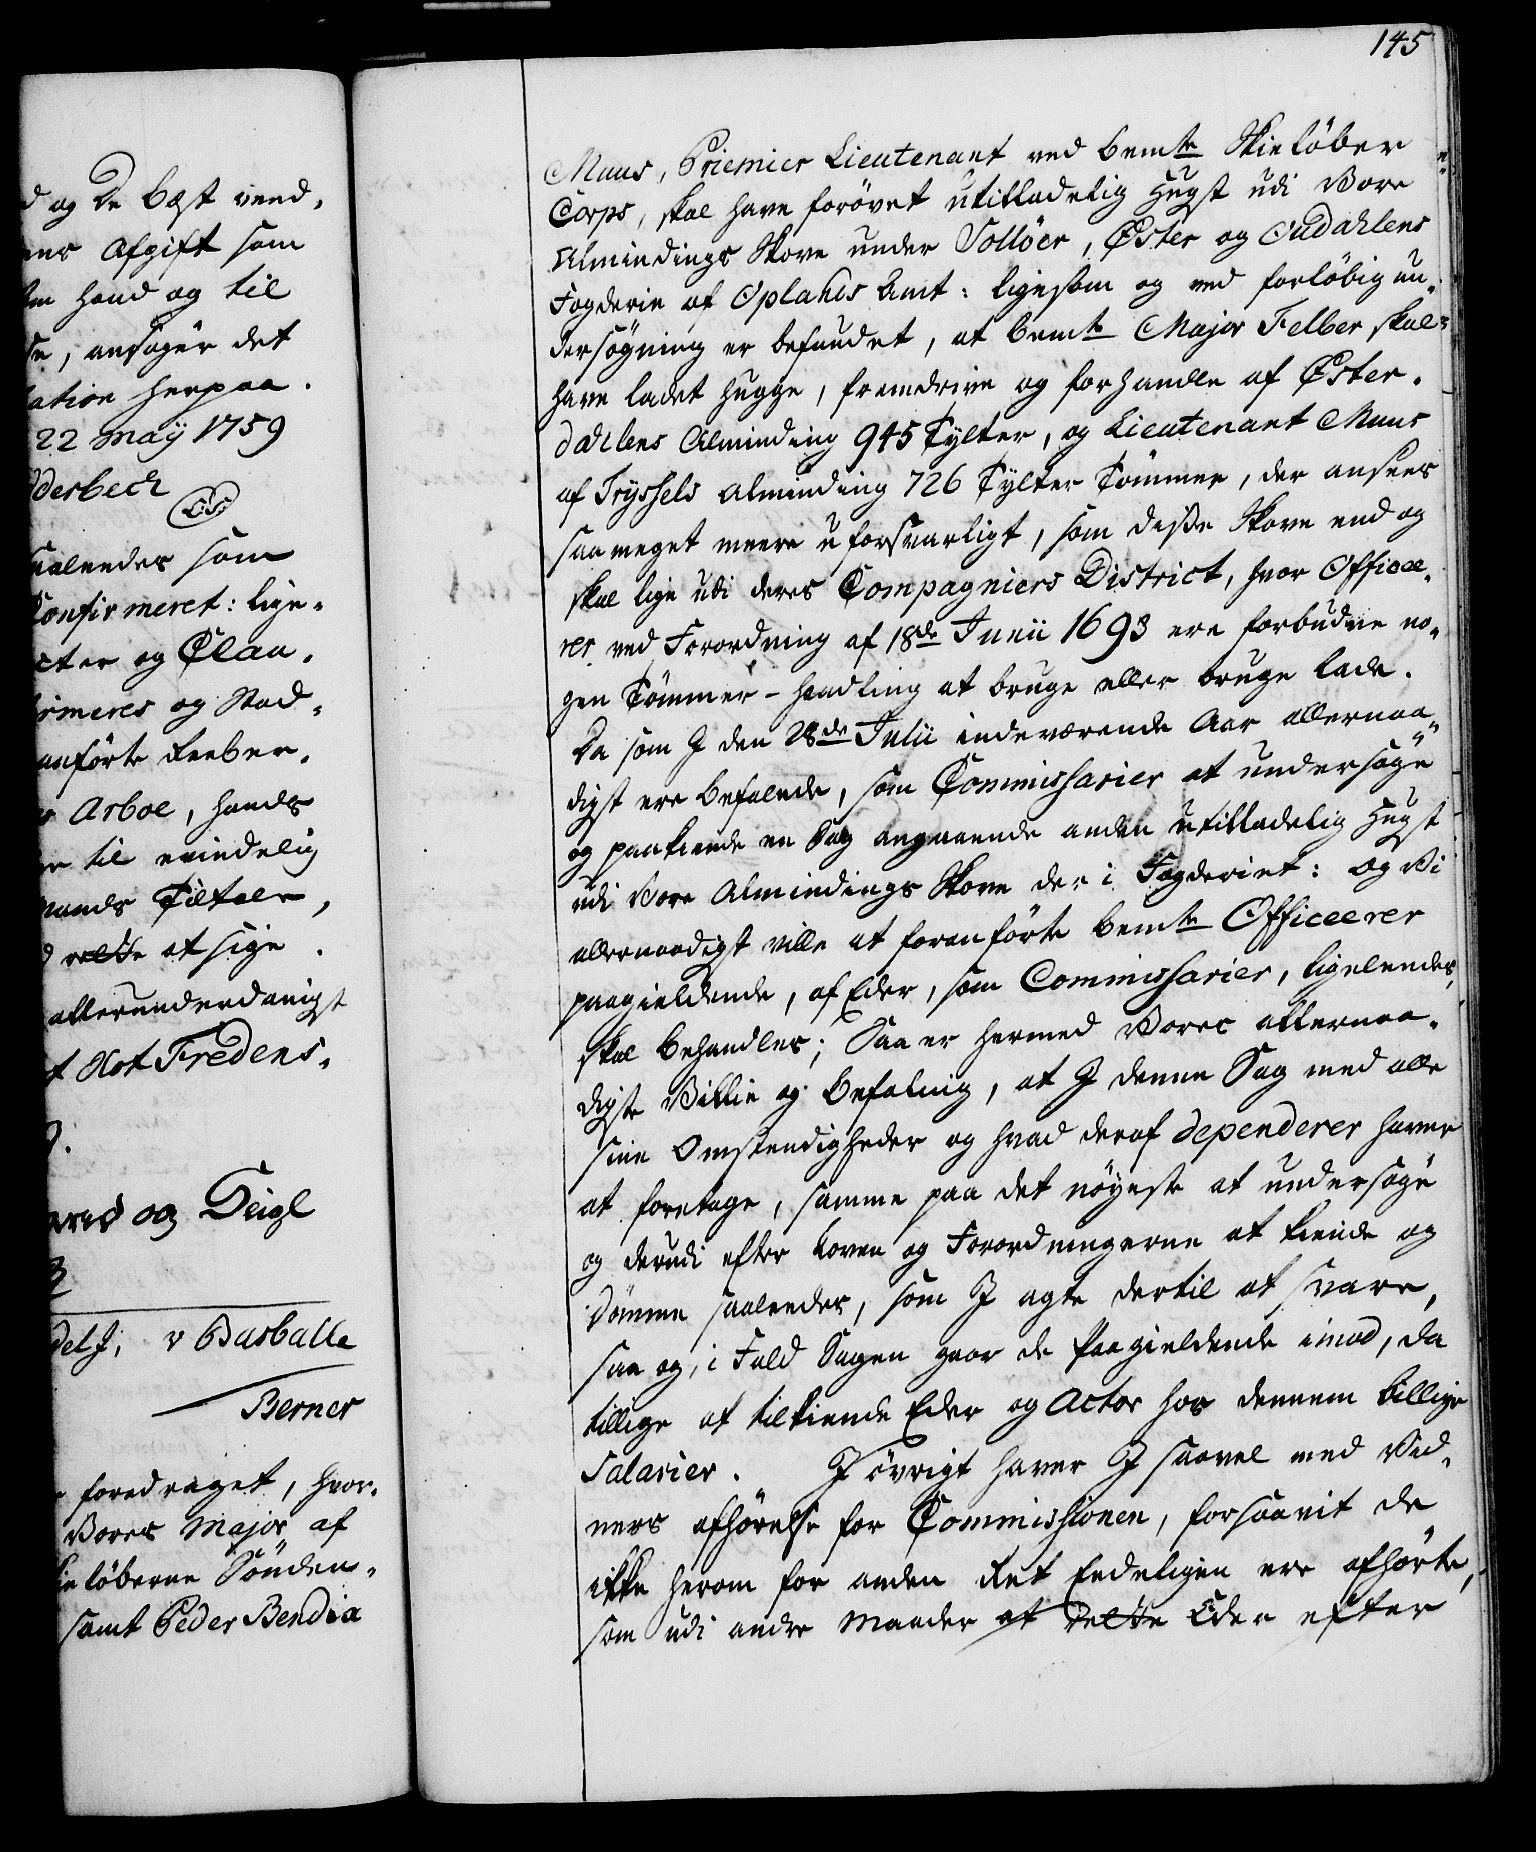 145
d og de bæst vend,
ens Afgift som
haud og til
se, ansøger det
tation herpaa.
22 Maÿ 1759
dderbech
L.S.
saaledes som
Confirmeret: lige,
cter og Clau,
irmeres og Stad,
anførte Feeber,
Arboe, hands
er til evindelig
mands Tiltale,
at sige.
allerunderdanigst
t Slot Fredens,
og Teigl
v Barballe
Berner
foredraget, hvor,
Vores Major af
ie løberne Sønden,
samt Peder Bendix
Muus, Priemier Lieutenant ved bemte Skieløber
Corps, skal have forøvet utilladelig Hugst udi Vore
Almindings Skove under Solløer, Øster og Oudahlens
Fogderie af Oplands Amt: ligesom og ved forløbig un,
dersøgning er befundet, at bemte Major Felber skal
have ladet hugge, fremdrive og forhandle af Øster,
dahlens Alminding 945 Tylter, og Lieutenant Muus
af Tryssels Alminding 726 Tylter Tømmer, der ansees
saa meget meere uforsvarligt, som disse Skove end og
skal lige udi deres Compagniers District, hvor Officee,
rer ved Forordning af 18de Junii 1693 ere forbudne no,
gen Tømmer-Handling at bruge eller bruge lade.
Da som I den 28de Julii indeværende Aar allernaa,
digst ere befalede, som Commissarier at undersøge
og paakiende en Sag angaaende anden utilladelig Hugst
udi Vore Almindings Skove der i Fogderiet: og Vi
allernaadigst ville at foranførte bemte Officeerer
paagieldende, af Eder, som Commissarier, ligeledes
skal behandles; Saa er hermed Vores allernaa,
digste Villie og Befaling, at I denne Sag med alle
sine Omstendigheder og hvad deraf dependerer haver
at foretage, samme paa det nøyeste at undersøge
og derudi efter Loven og Forordningerne at kiende og
dømme saaledes, som I agte dertil at svare,
saa og, i Fald Sagen gaar de paagieldende imod, da
tillige at tilkiende Eder og Actor hos dennem billige
Salarier. I øvrigt haver I saavel med Vid,
ners afhørelse for Commissionen, forsaavit de
ikke herom for anden Ret Endeligen ere afhørte,
som udi andre Maader at rette Eder efter